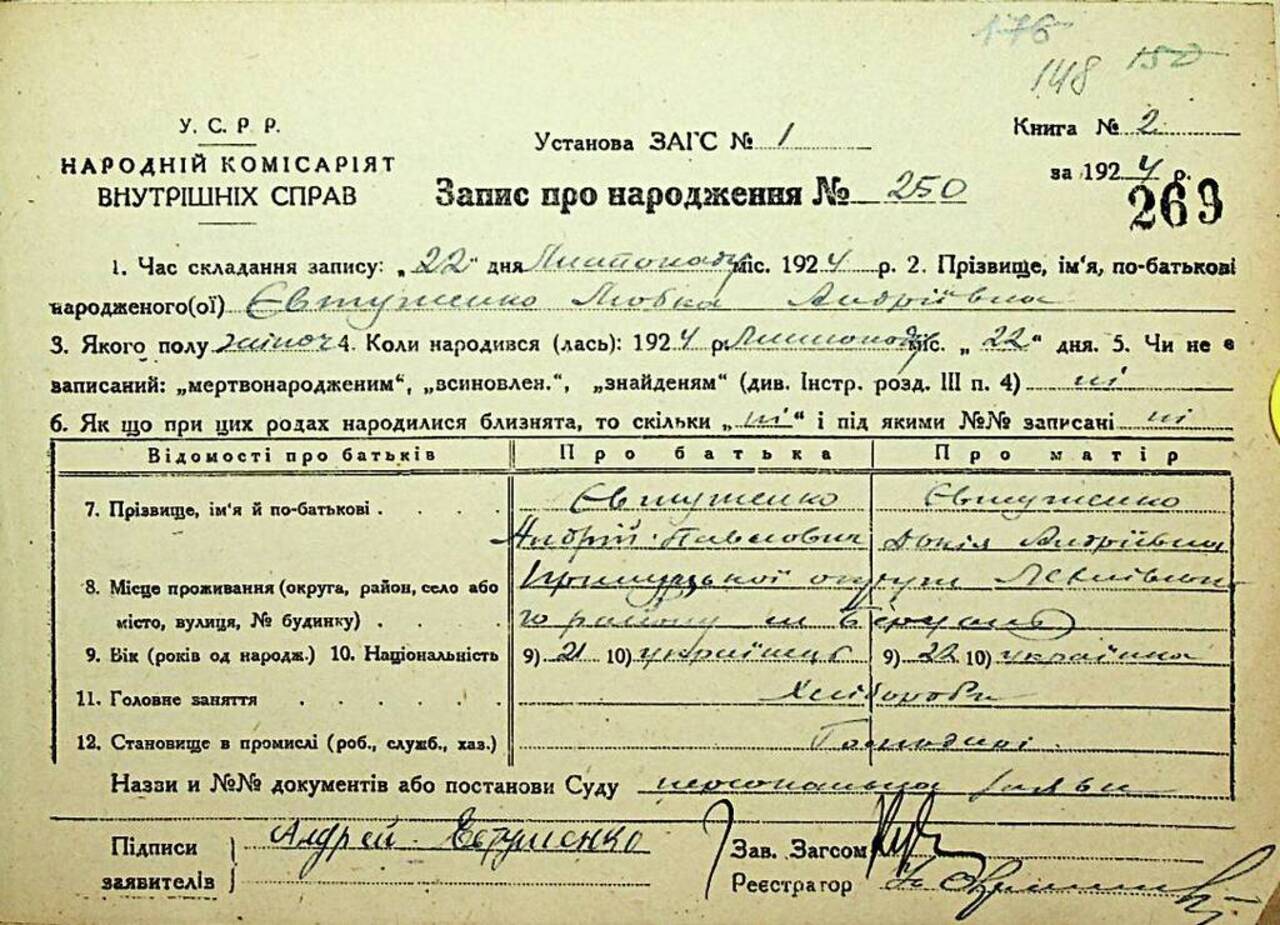 176
148 150
У. С. Р Р.
НАРОДНІЙ КОМІСАРІЯТ
ВНУТРІШНІХ СПРАВ
Установа ЗАГС № 1
Книга № 2
за 1924 р.
Запис про народження № 250
269
1. Час складання запису: „22" дня Листопаду міс. 1924 р. 2. Прізвище, ім'я, по-батькові
народженого(ої) Євтушенко Любка Андріївна
3. Якого полу жіноч 4. Коли народився (лась): 1924 р. Листопаду міс. „22" дня. 5. Чи не є
записаний: „мертвонародженим", „всиновлен.", „знайденям" (див. Інстр. розд. III п. 4) ні
6. Як що при цих родах народилися близнята, то скільки „ні" і під якими №№ записані ні
Відомості про батьків Про батька Про матір
7. Прізвище, ім'я й по-батькові . . . . Євтушенко Євтушенко
Андрій Павлович Докія Андріївна
8. Місце проживання (округа, район, село або Прилуцької округи
місто, вулиця, № будинку) . . . . го району
9. Вік (років од народж.) 10. Національність 9) 21 10) українець 9) 22 10) українка
11. Головне заняття . . . . . . Хлібороби
12. Становище в промислі (роб., служб., хаз.) Господарі
Назви и №№ документів або постанови Суду персональна заява
Підписи Андрей Евтушенко
заявителів
Зав. Загсом
Реєстратор